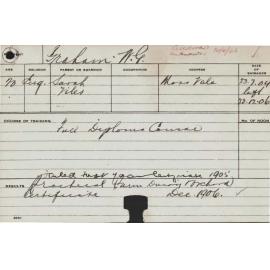 Graham. W. G.
AGE RELIGION PARENT OR GUARDIAN OCCUPATION ADDRESS DATE OF ENTRANCE
Eng. Sarah Moss Vale 23.7.04
Left
22.12.06
COURSE OF TRAINING NO. OF ROOM
Full Diploma Course
Failed 1st year 1905
RESULTS Practical Farm Dairy Orchard
Certificate Dec. 1906.